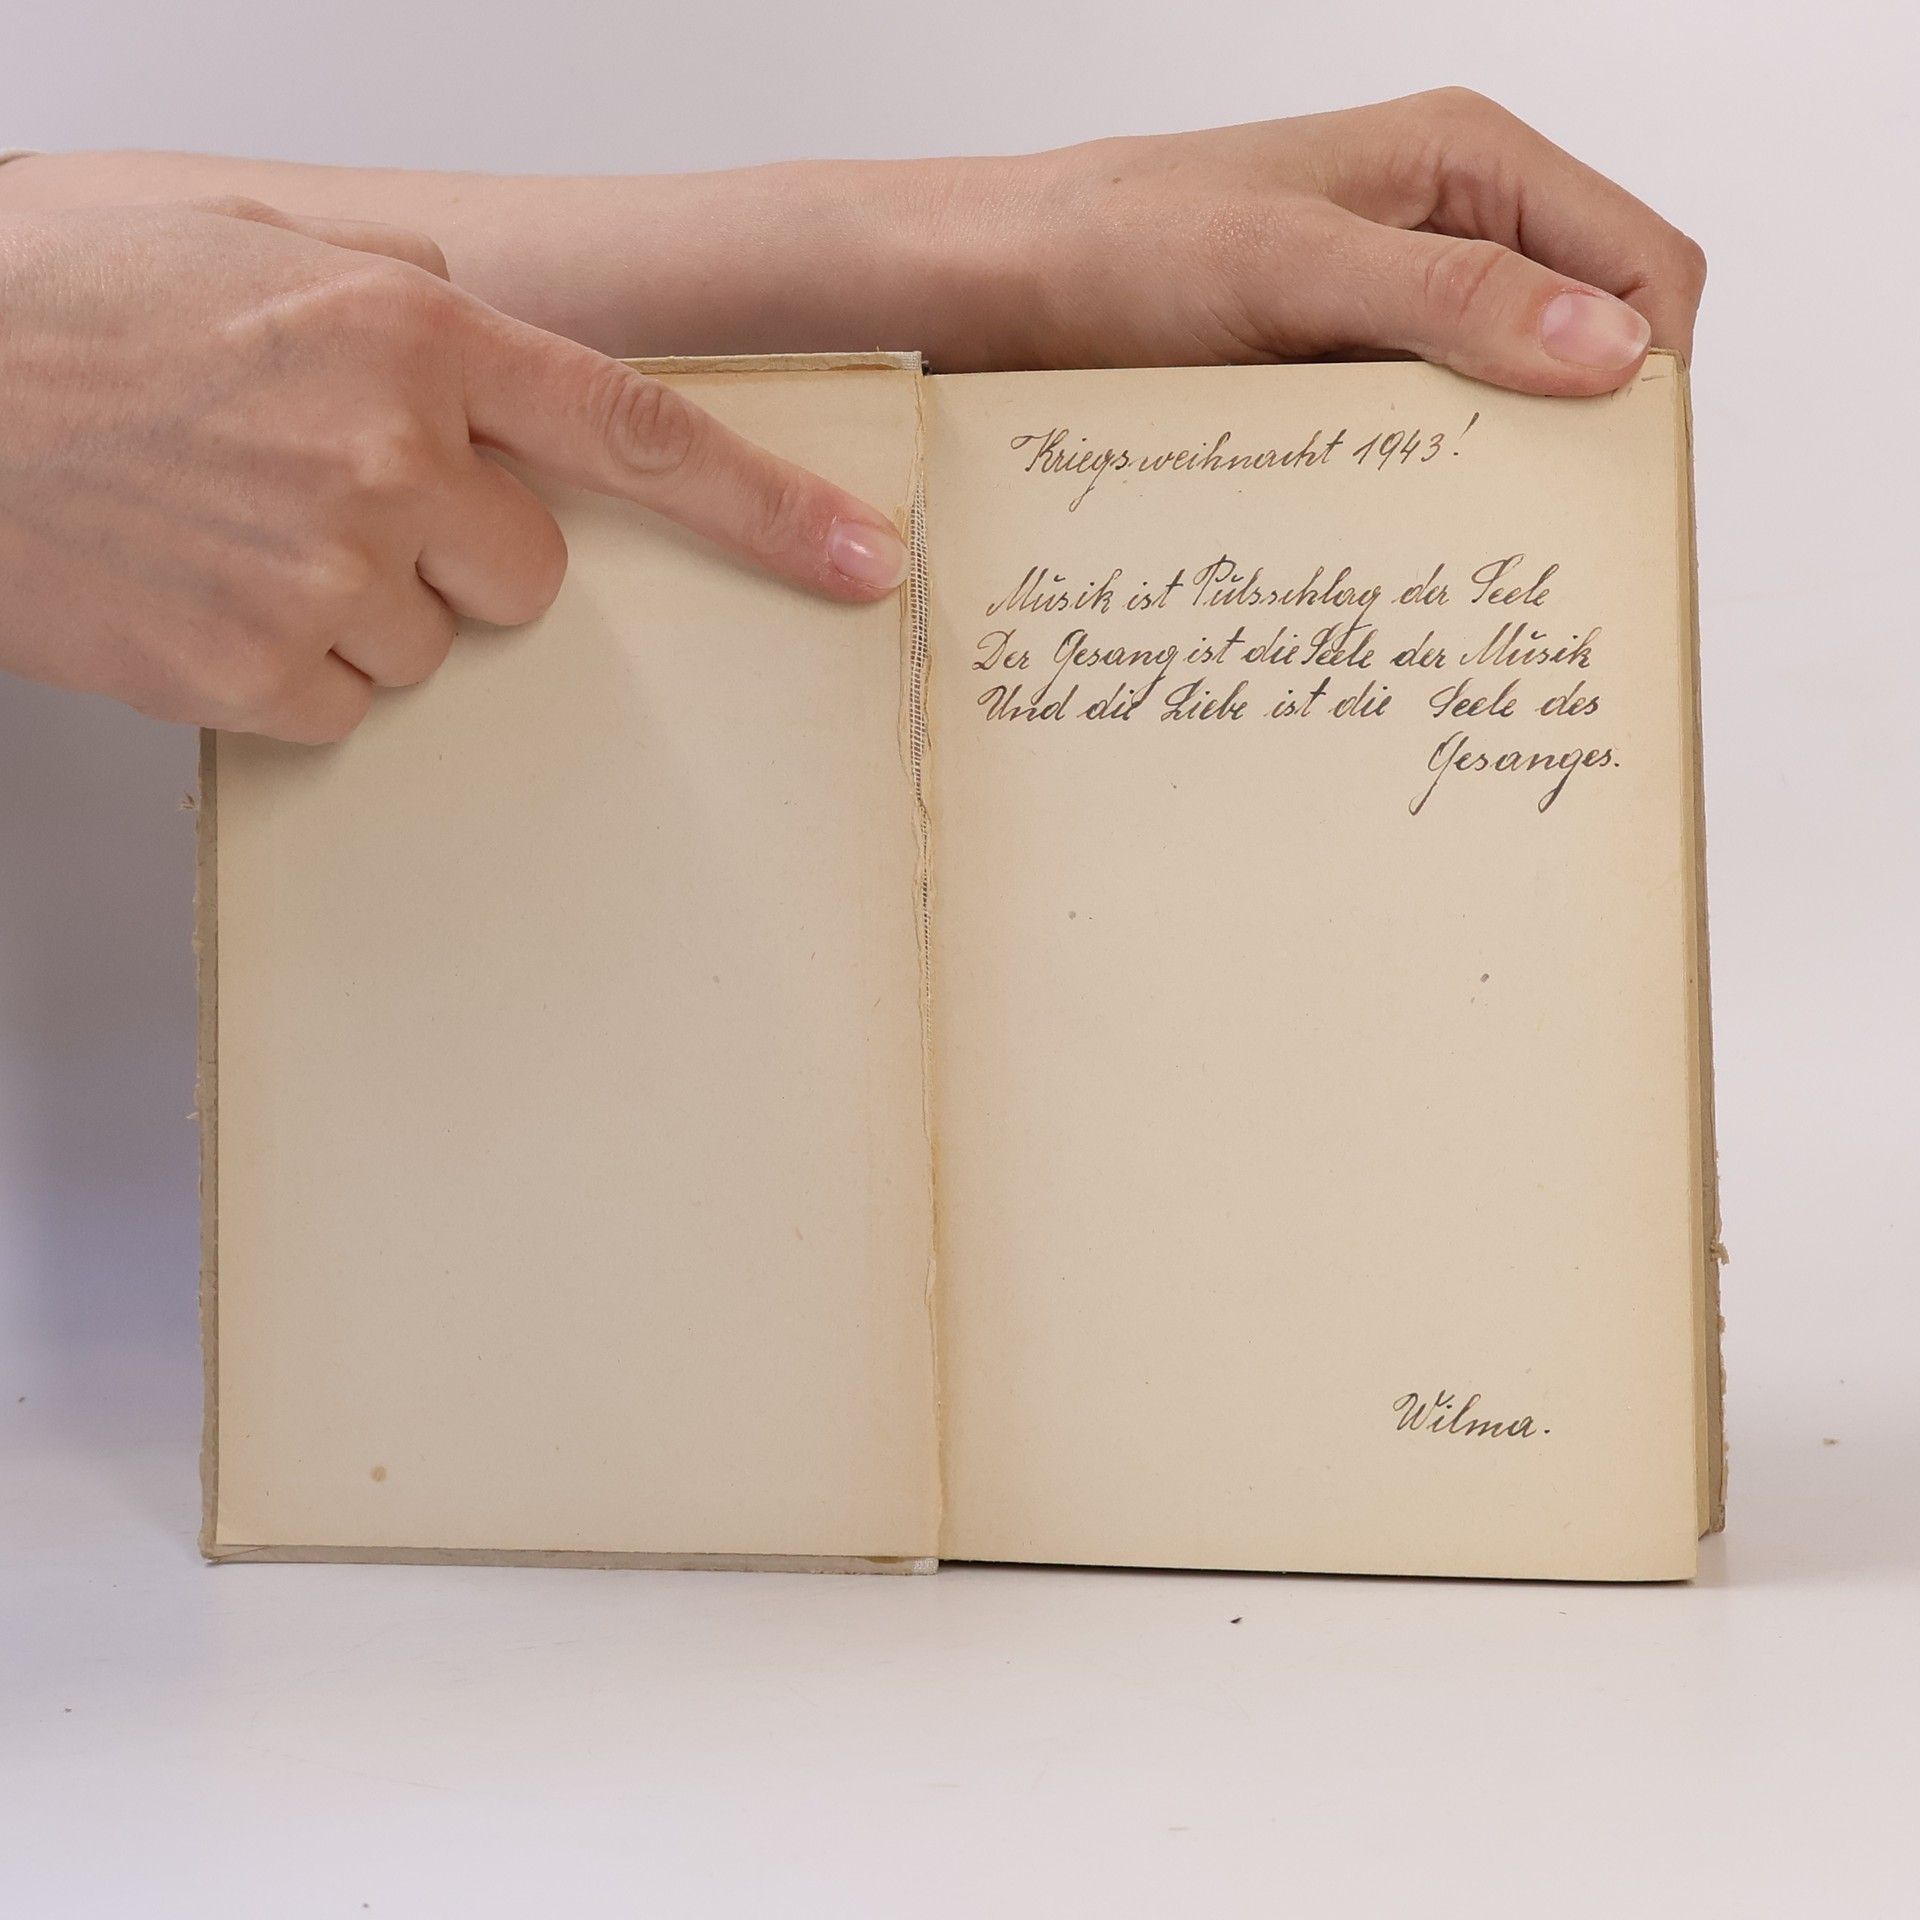 Kriegsweihnacht 1943!
Musik ist Pulsschlag der Seele
Der Gesang ist die Seele der Musik
Und die Liebe ist die Seele des
Gesanges.
Wilma.